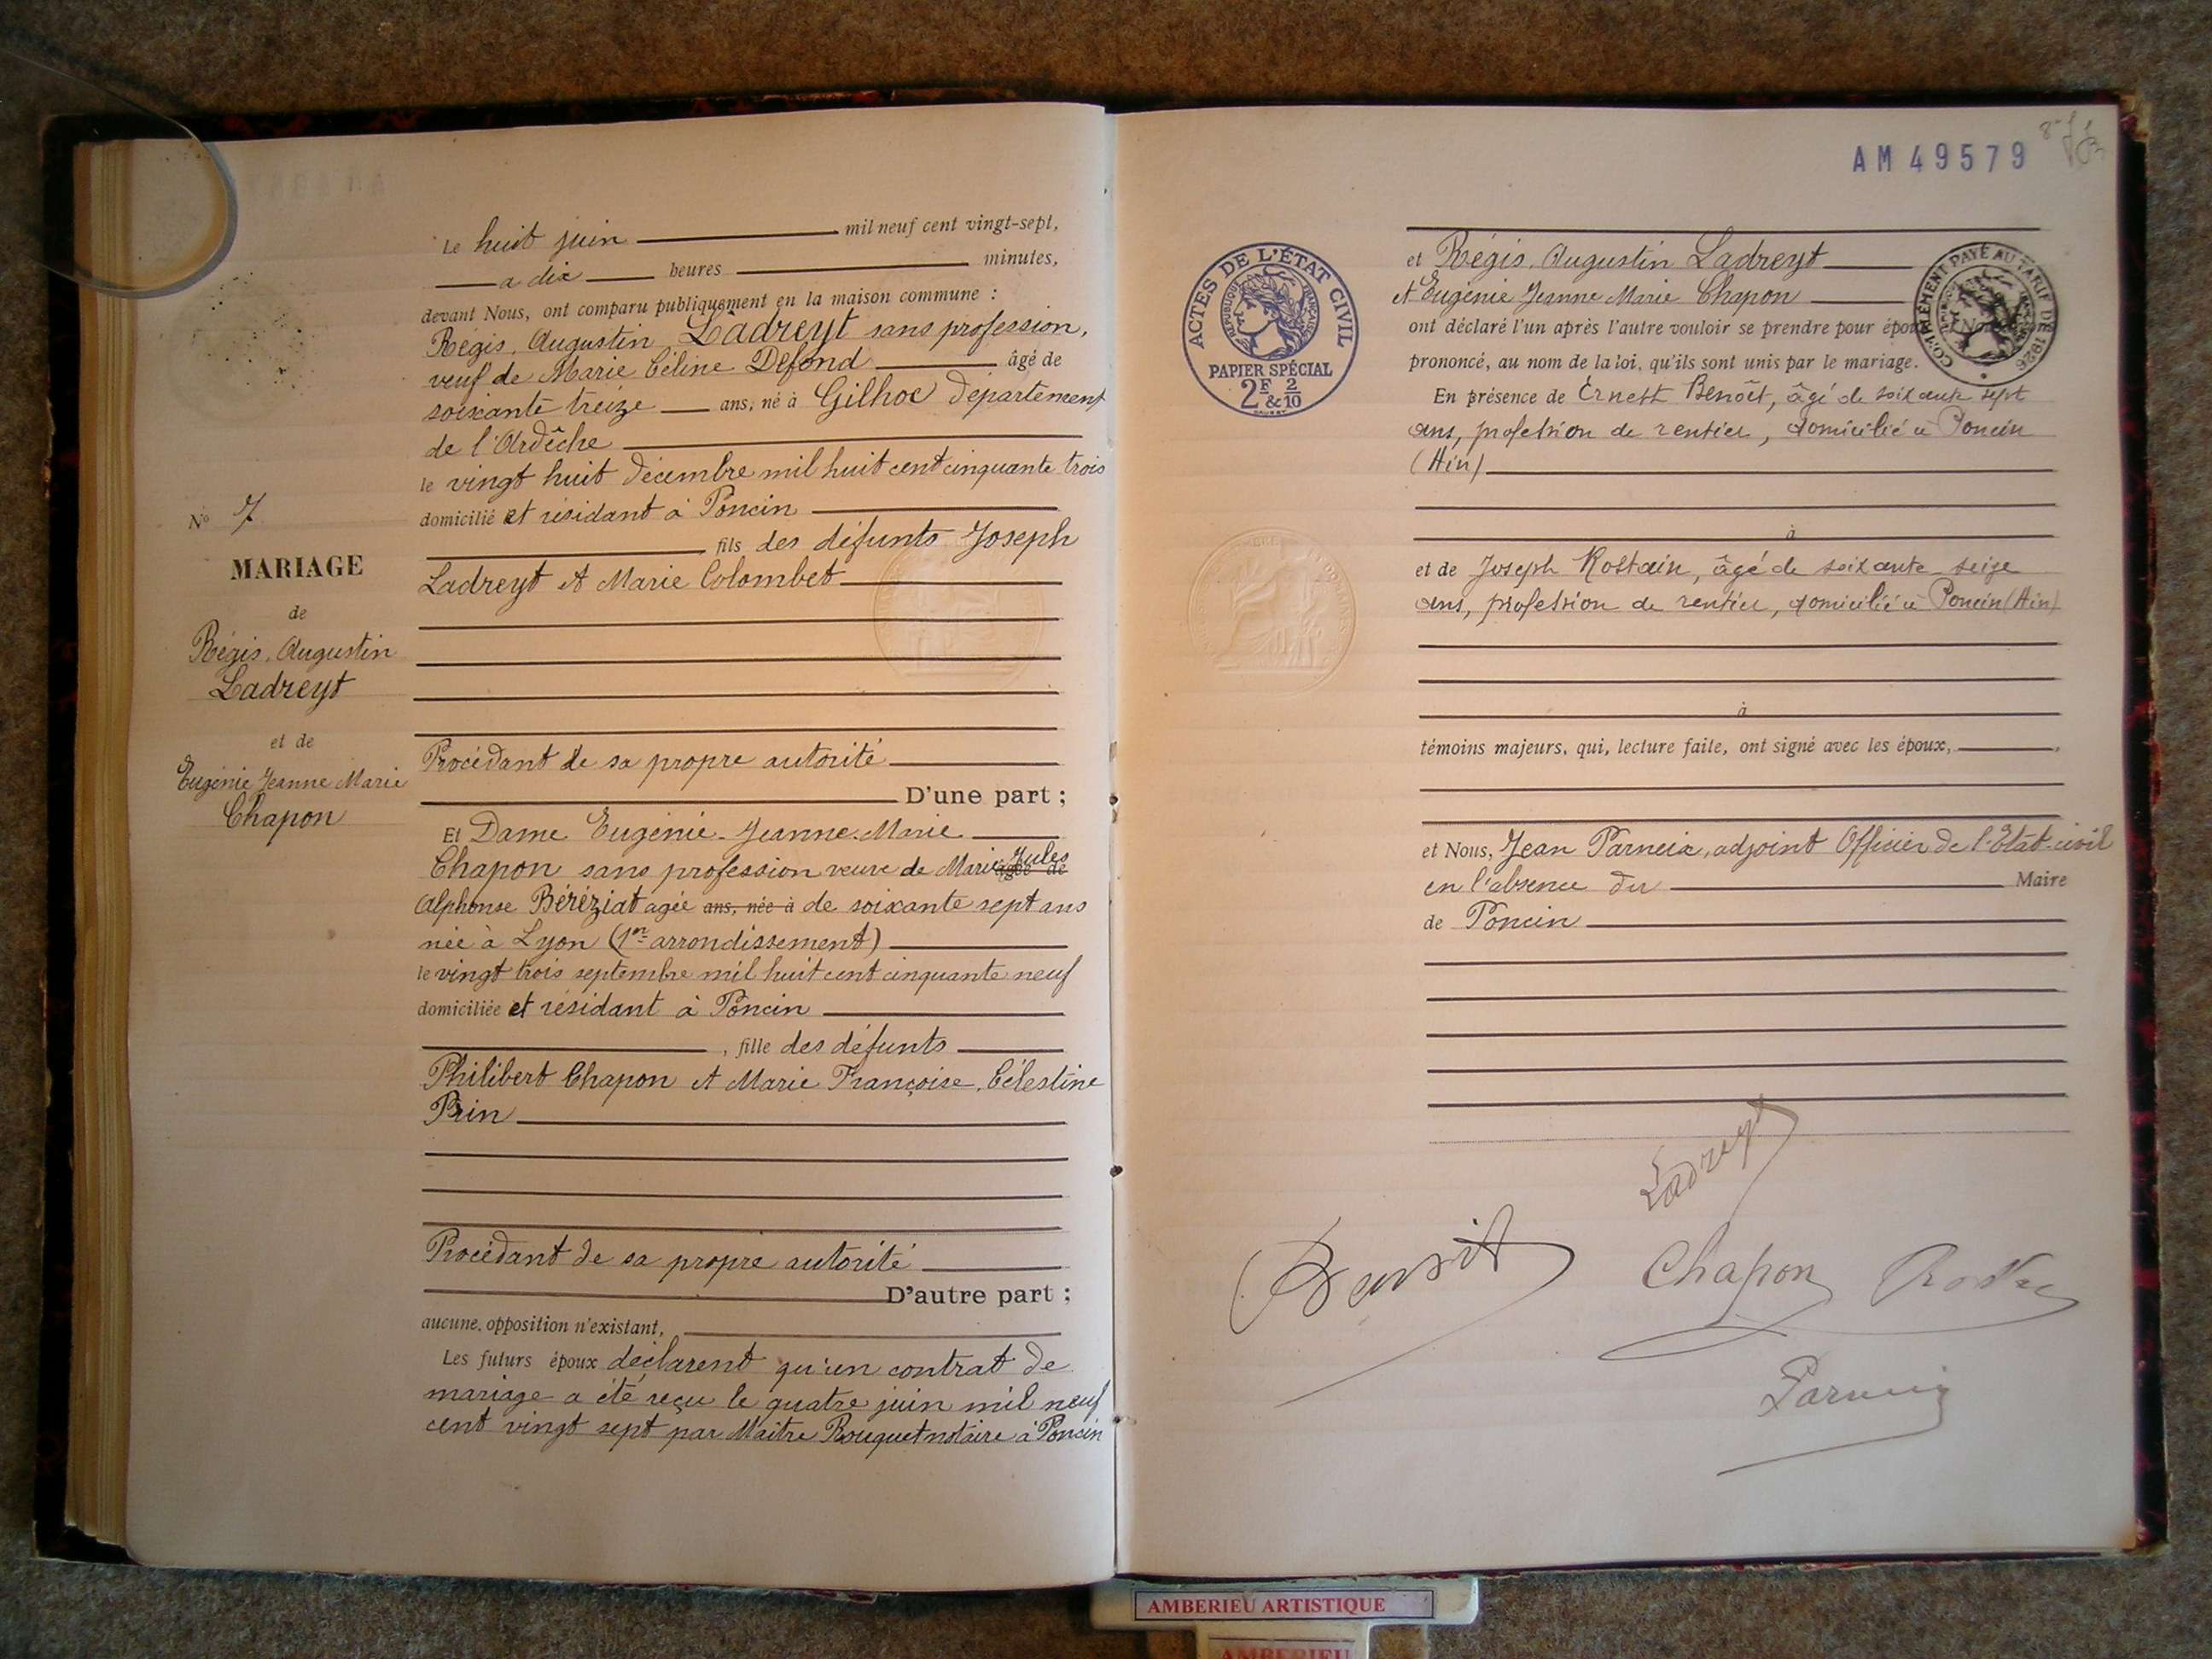 Le huit juin mil neuf cent vingt-sept,
a dix heures minutes,
devant Nous, ont comparu publiquement en la maison commune :
Régis, Augustin Ladreyt sans profession,
veuf de Marie Céline Defond âgé de
soixante treize ans, né à Gilhoc département
de l'Ardêche
le vingt huit décembre mil huit cent cinquante trois
domicilié et résidant à Poncin
fils des défunts Joseph
Ladreyt et Marie Colombet
Procédant de sa propre autorité
D'une part ;
Et Dame Eugénie-Jeanne-Marie
Chapon sans profession veuve de Marie Jules âgée de
Alphonse Béréziat agée ans, née à de soixante sept ans
née à Lyon (1er arrondissement)
le vingt trois septembre mil huit cent cinquante neuf
domiciliée et résidant à Poncin
, fille des défunts
Philibert Chapon et Marie Françoise, Célestine
Prin
Procédant de sa propre autorité
D'autre part ;
aucune opposition n'existant,
Les futurs époux déclarent qu'un contrat de
mariage a été reçu le quatre juin mil neuf
cent vingt sept par Maître Rouquet notaire à Poncin
N° 7
MARIAGE
de
Régis, Augustin
Ladreyt
et de
Eugénie Jeanne Marie
Chapon
AM 49579
ACTES DE L'ÉTAT CIVIL
RÉPUBLIQUE FRANÇAISE
PAPIER SPÉCIAL
2F & 2/10
COMPLÉMENT PAYÉ AU TARIF DE 1926
et Régis, Augustin Ladreyt
et Eugénie Jeanne Marie Chapon
ont déclaré l'un après l'autre vouloir se prendre pour épou
prononcé, au nom de la loi, qu'ils sont unis par le mariage.
En présence de Ernest Benoît, âgé de soixante sept
ans, profession de rentier, domicilié à Poncin
(Ain)
à
et de Joseph Rostain, âgé de soixante seize
ans, profession de rentier, domicilié à Poncin (Ain)
à
témoins majeurs, qui, lecture faite, ont signé avec les époux,
et Nous, Jean Parneix, adjoint Officier de l'Etat-civil
en l'absence du Maire
de Poncin
Ladreyt
Benoit
Chapon
Parneix
AMBERIEU ARTISTIQUE
AMBERIEU